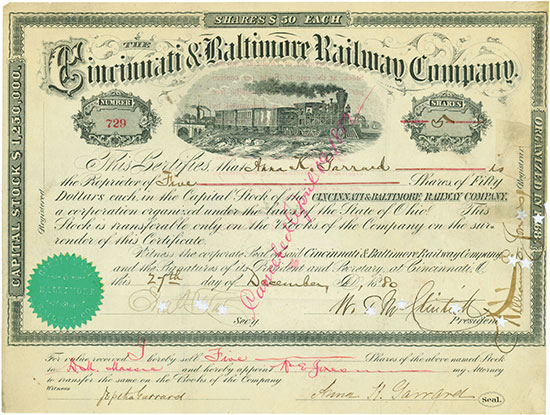 SHARES $ 50 EACH
THE
Cincinnati & Baltimore Railway Company.
NUMBER
729
SHARES
5
CAPITAL STOCK $ 1,250,000.
ORGANIZED IN
This Certifies, that Anna K. Garrard is
the Proprietor of Five Shares of Fifty
Dollars each in the Capital Stock of the CINCINNATI & BALTIMORE RAILWAY COMPANY,
a corporation organized under the laws of the State of Ohio. This
Stock is transferable only on the Books of the Company on the sur-
render of this Certificate.
Registered
Witness the corporate Seal of said Cincinnati & Baltimore Railway Company
and the Signatures of its President and Secretary at Cincinnati, O.
this 27th day of December A.D. 1880
Cancelled April
Secy
President
For value received I hereby sell Five Shares of the above named Stock
to and hereby appoint my Attorney
to transfer the same on the Books of the Company
Witness
Jeptha Garrard
Anna K. Garrard
Seal.